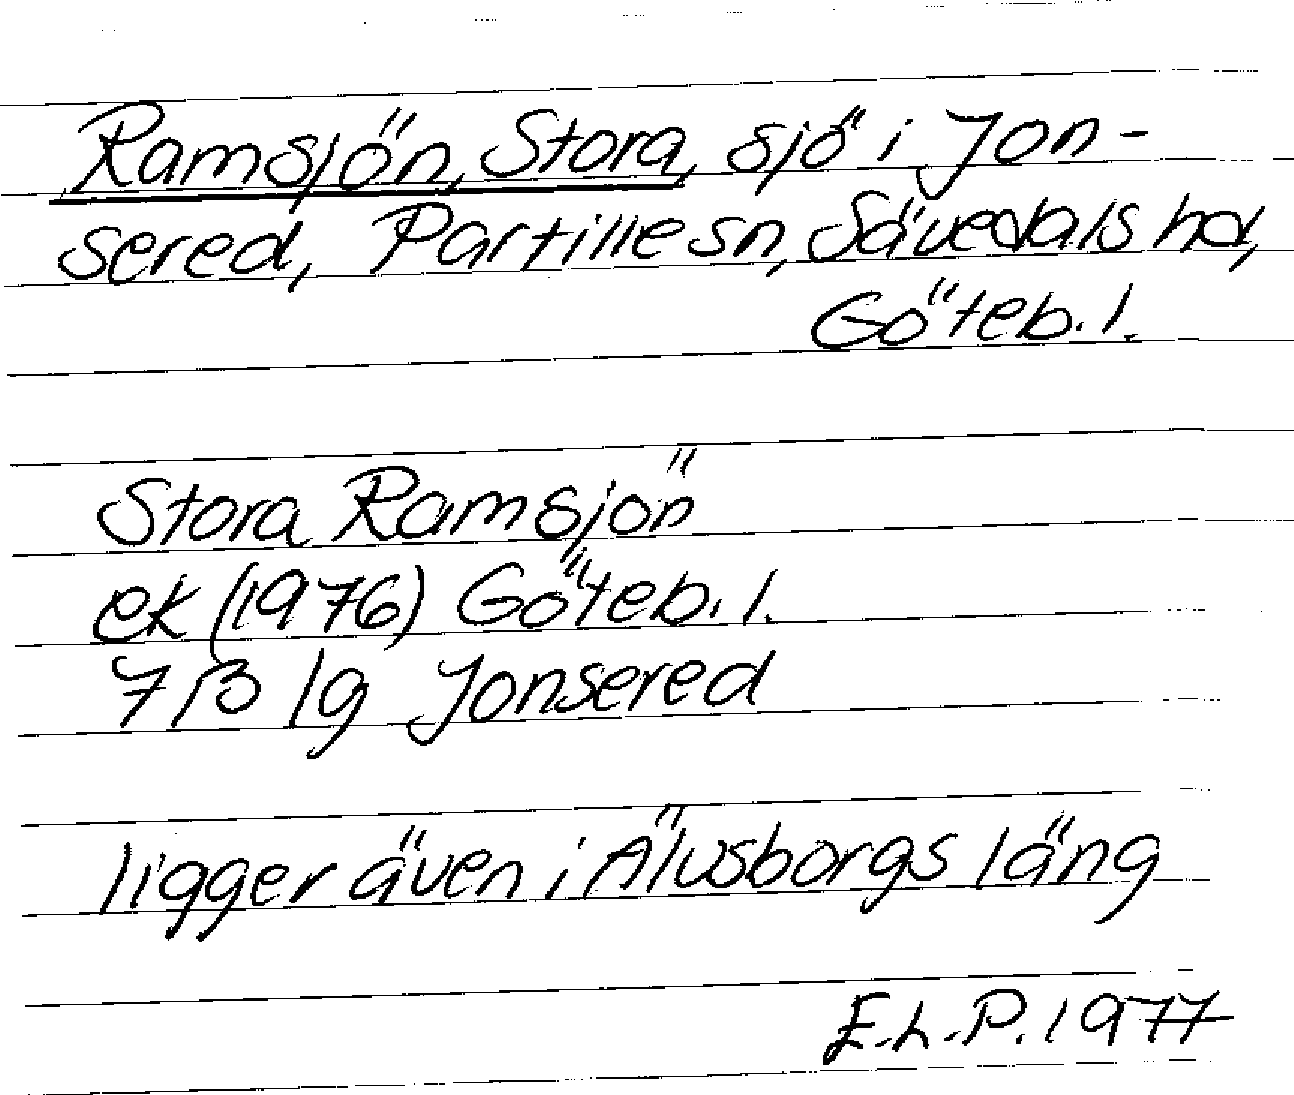 Ramsjön, Stora, sjö i Jon-
sered, Partille sn, Sävedals hd,
Göteb. l.
Stora Ramsjön
ek (1976) Göteb. l.
7B 1g Jonsered
ligger även i Älvsborgs läng
E.L.P. 1977